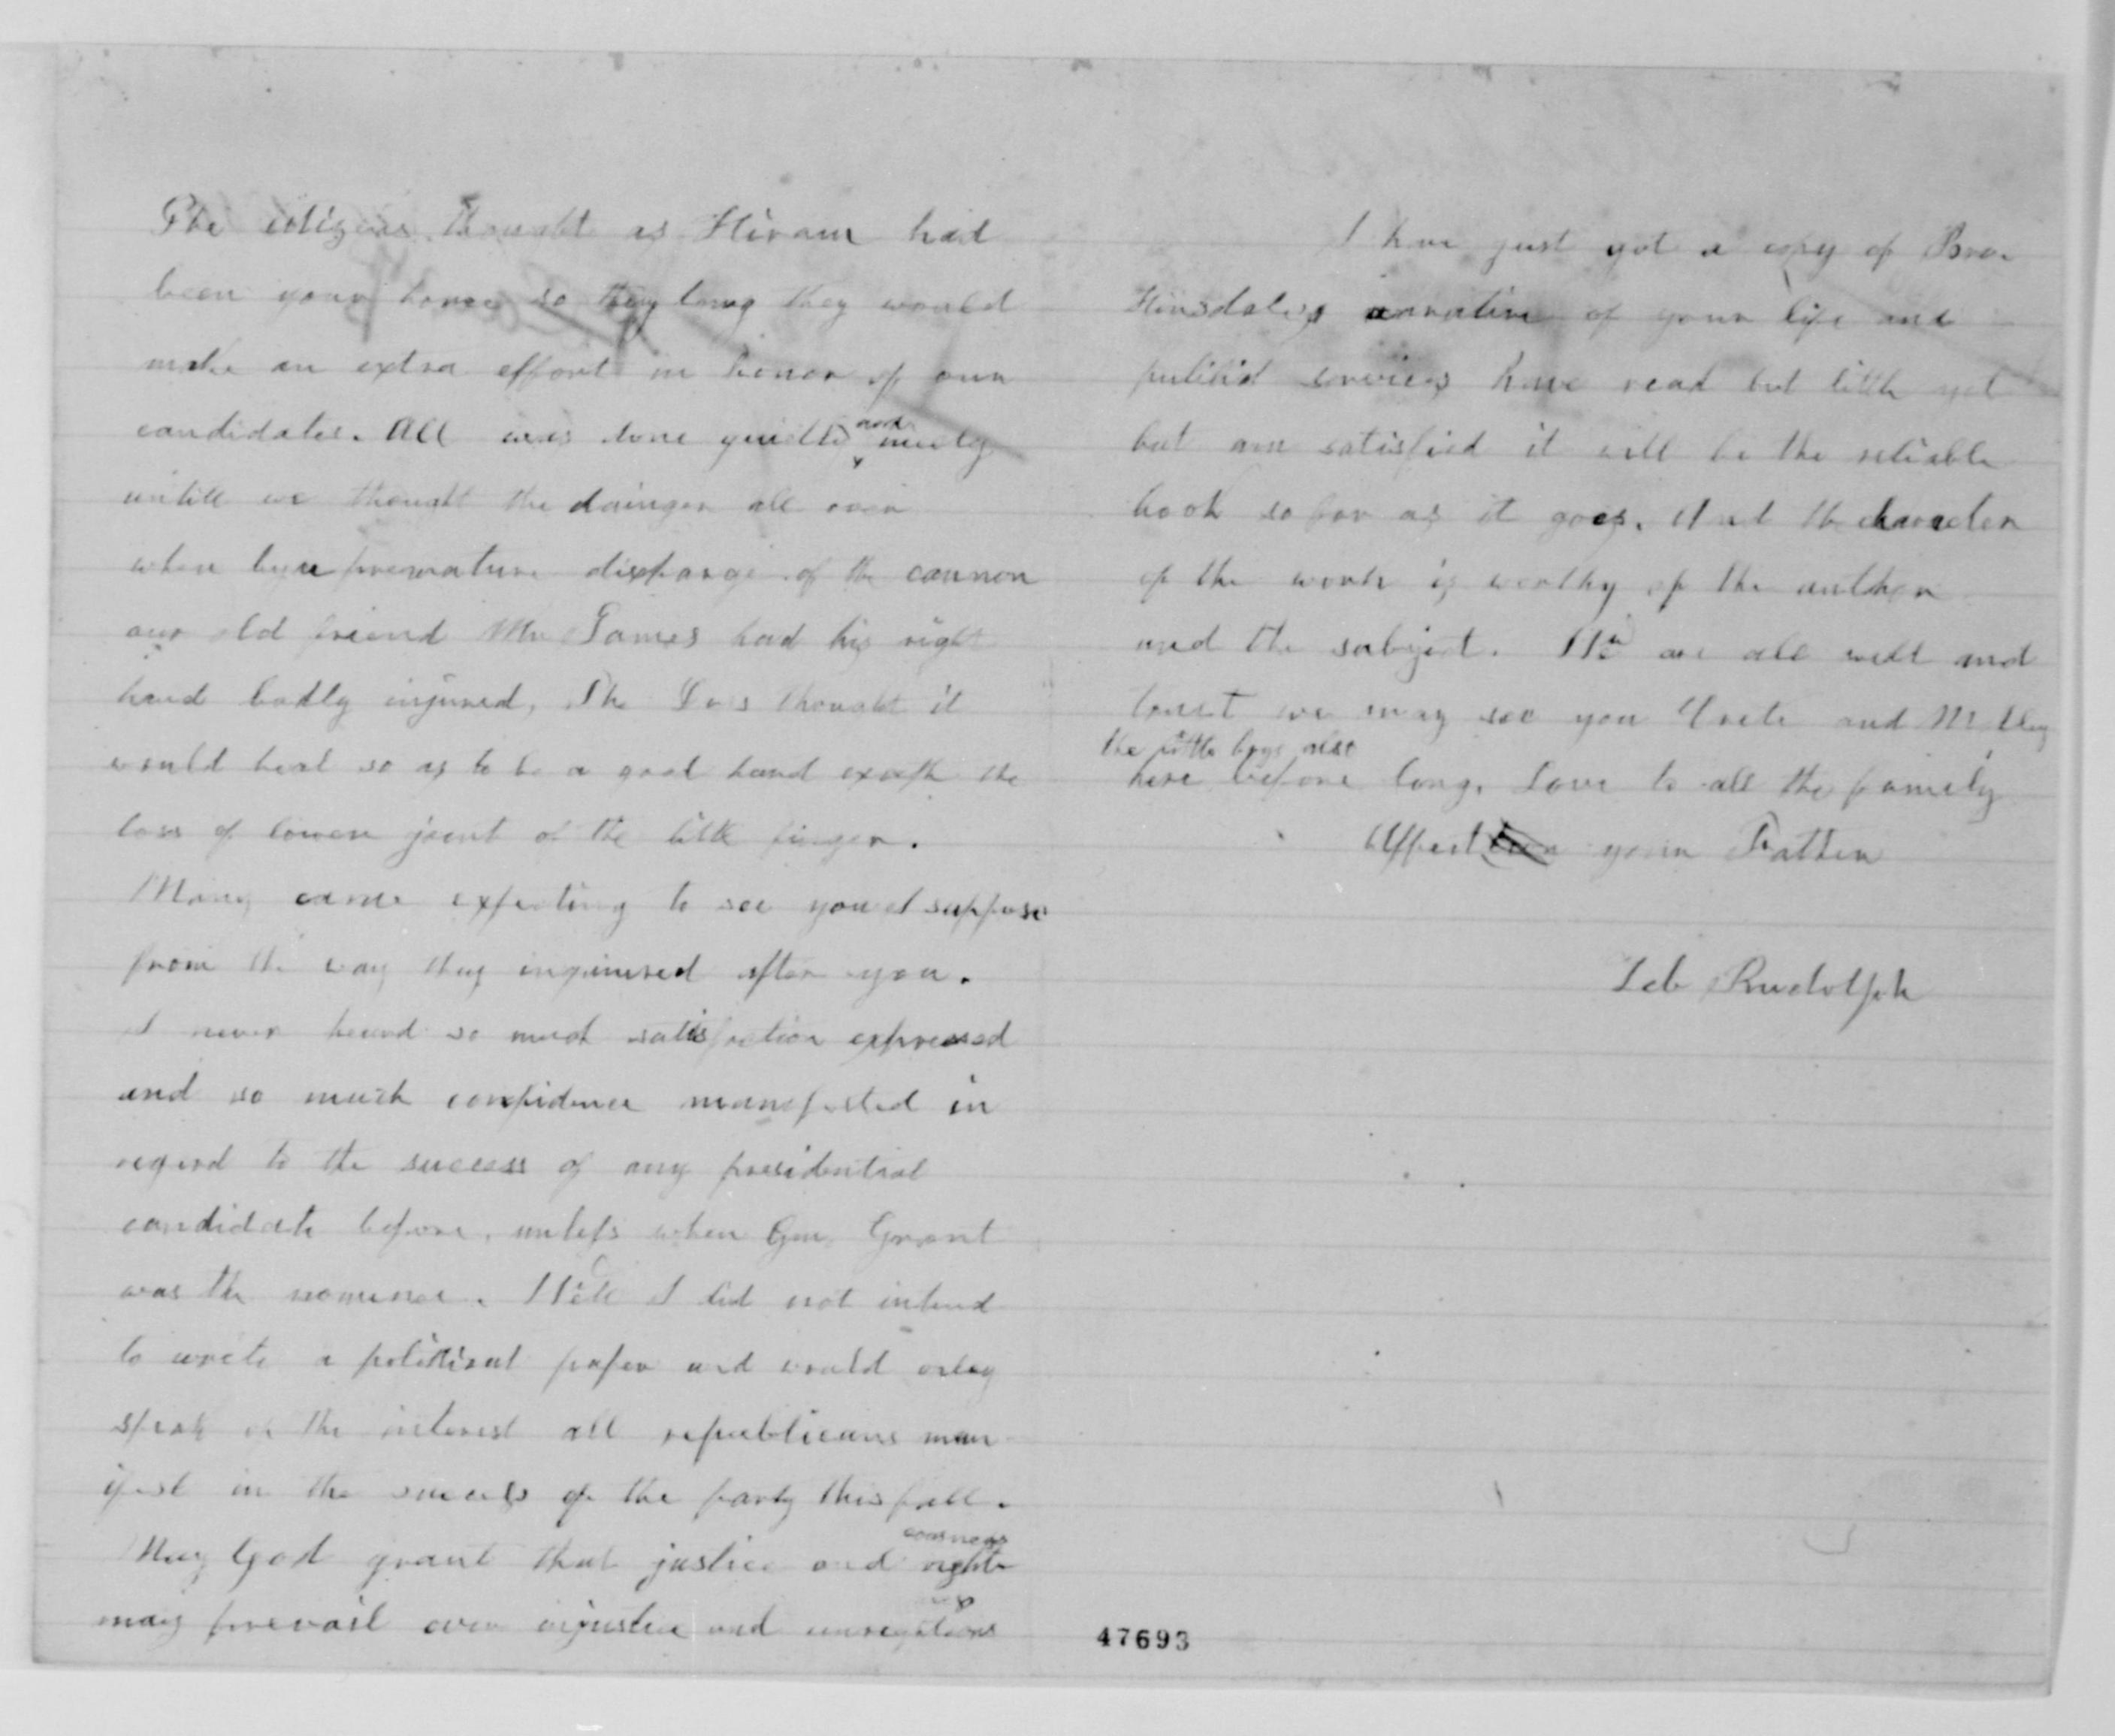 The citizens thought as Hiram had
been your home so long they would
make an extra effort in honor of our
candidates. All was done quietly and nicely
untill we thought the dainger all over
when by a premature discharge of the cannon
our old friend Mr James had his right
hand badly injured, The Docs thought it
would heal so as to be a good hand except the
loss of lower joint of the little finger.
Many came expecting to see you I suppose
from the way they inquired after you.
I never heard so much satisfaction expressed
and so much confidence manifested in
regard to the success of any presidential
candidate before, unless when Gen Grant
was the nominee. Well I did not intend
to write a political paper and would only
speak of the interest all republicans man
ifest in the success of the party this fall.
May God grant that justice and righteousness
may prevail over injustice and
I have just got a copy of Bro.
Hinsdales narative of your life and
services have read but little yet
but am satisfied it will be the reliable
book so far as it goes. And the character
of the work is worthy of the author
and the subject. We are all well and
trust we may see you Crete and Molly
the little boys also
here before long. Love to all the family
Affect your Father
Zeb Rudolph
47693